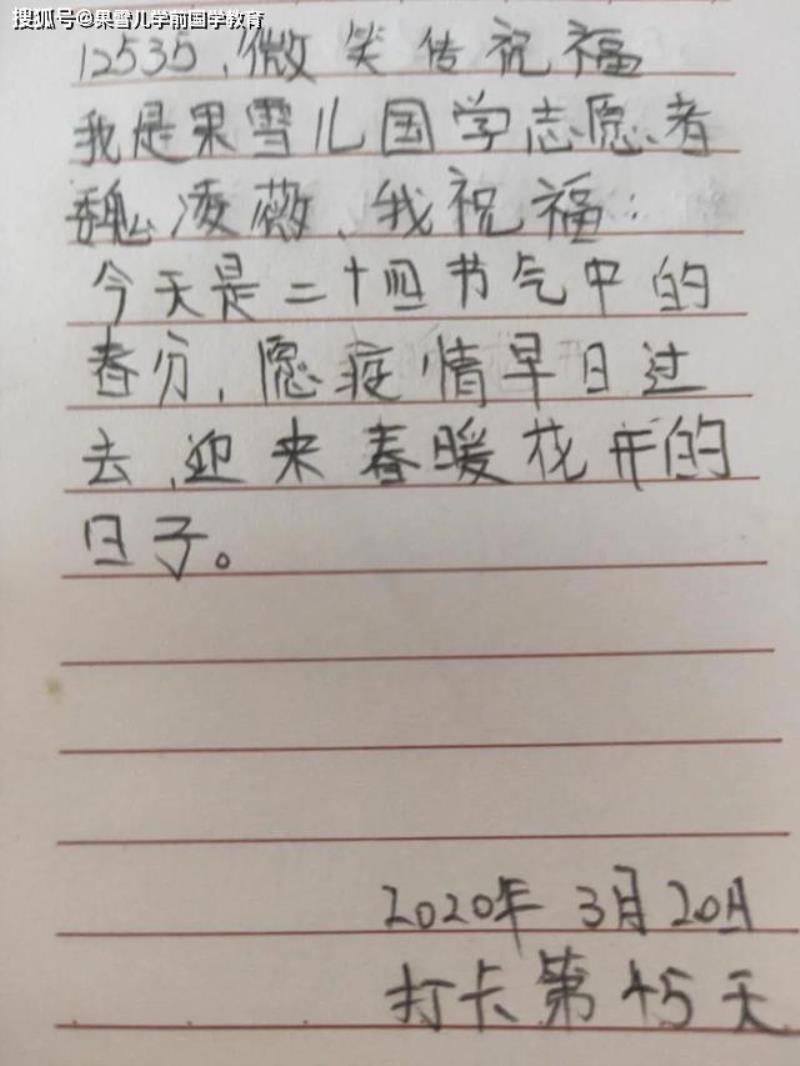 搜狐号@果雪儿学前国学教育
12535，微笑传祝福
我是果雪儿国学志愿者
魏凌薇、我祝福：
今天是二十四节气中的
春分，愿疫情早日过
去、迎来春暖花开的
日子。
2020年3月20日
打卡第45天